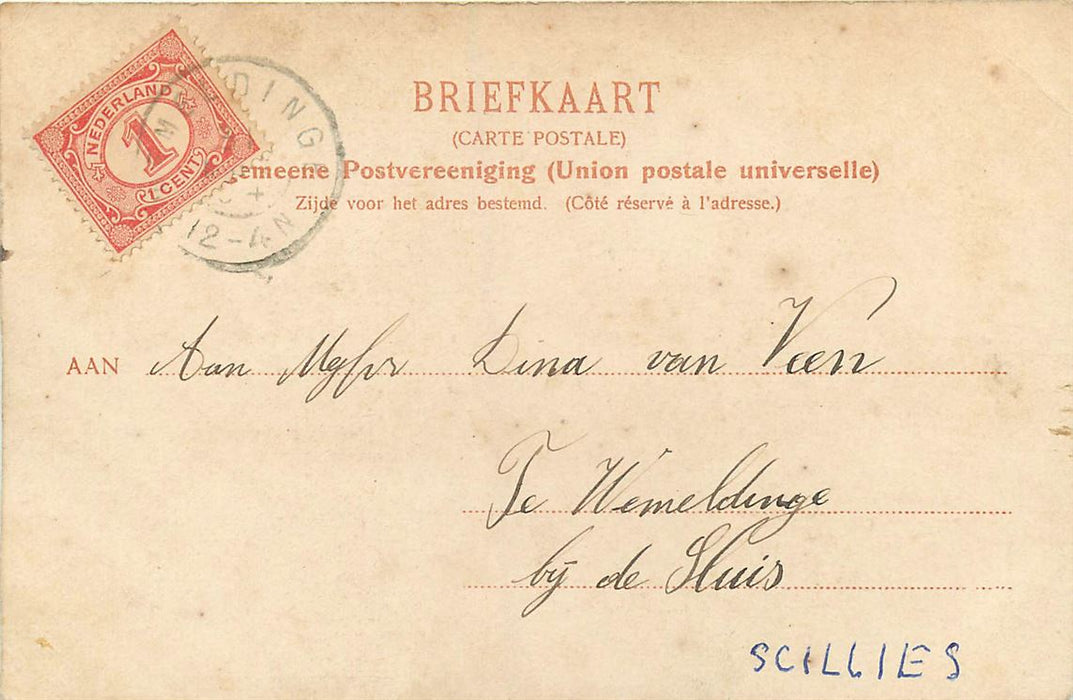 BRIEFKAART
(CARTE POSTALE)
emeene Postvereeniging (Union postale universelle)
Zijde voor het adres bestemd. (Côté réservé à l'adresse.)
NEDERLAND
1
1 CENT
DINGE
12-4N
AAN Aan Mejfr Dina van Veen
Te Wemeldinge
bij de Sluis
SCILLIES